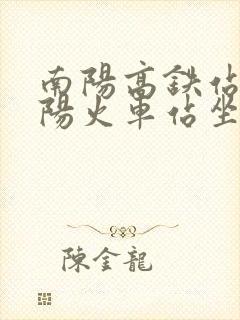 南陽高鉄佔
陽火車佔坐
陳金龍